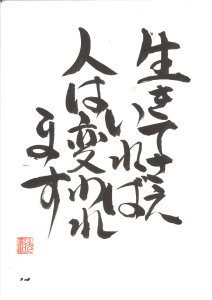 生きてさえ
いれば
人は変われ
ます